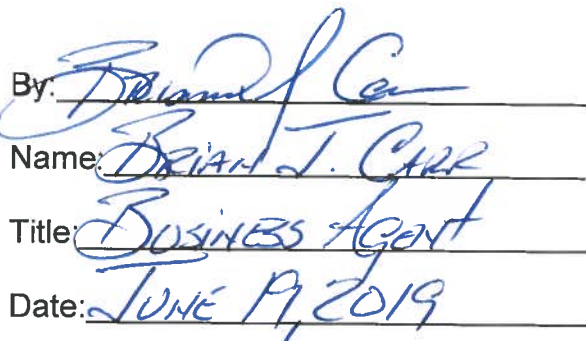 By: Brian J Carr
Name: BRIAN J. CARR
Title: BUSINESS AGENT
Date: JUNE 19, 2019